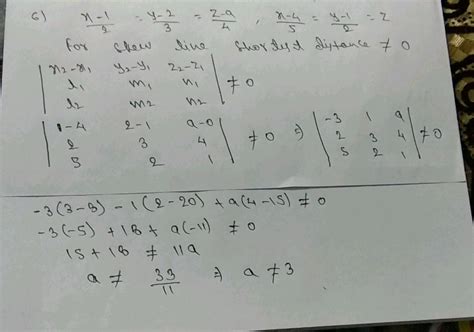 6) x-1/2 = y-2/3 = z-a/4 , x-4/5 = y-1/2 = z
For skew line shortest distance ≠ 0
| x2-x1 y2-y1 z2-z1 |
| l1 m1 n1 | ≠ 0
| l2 m2 n2 |
| 1-4 2-1 a-0 | | -3 1 a |
| 2 3 4 | ≠ 0 ⇒ | 2 3 4 | ≠ 0
| 5 2 1 | | 5 2 1 |
-3(3-8) -1(2-20) + a(4-15) ≠ 0
-3(-5) + 18 + a(-11) ≠ 0
15 + 18 ≠ 11a
a ≠ 33/11 ⇒ a ≠ 3